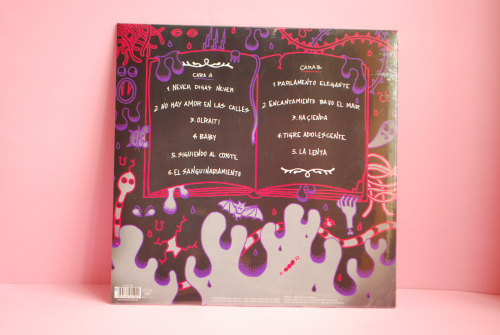 CARA A
1. NEVER DIGAS NEVER
2. NO HAY AMOR EN LAS CALLES
3. OLRAITI
4. BABY
5. SIGUIENDO AL COYOTE
6. EL SANGUINARIAMIENTO
CARA B
1. PARLAMENTO ELEGANTE
2. ENCANTAMIENTO BAJO EL MAR
3. HACIENDA
4. TIGRE ADOLESCENTE
5. LA LENTA